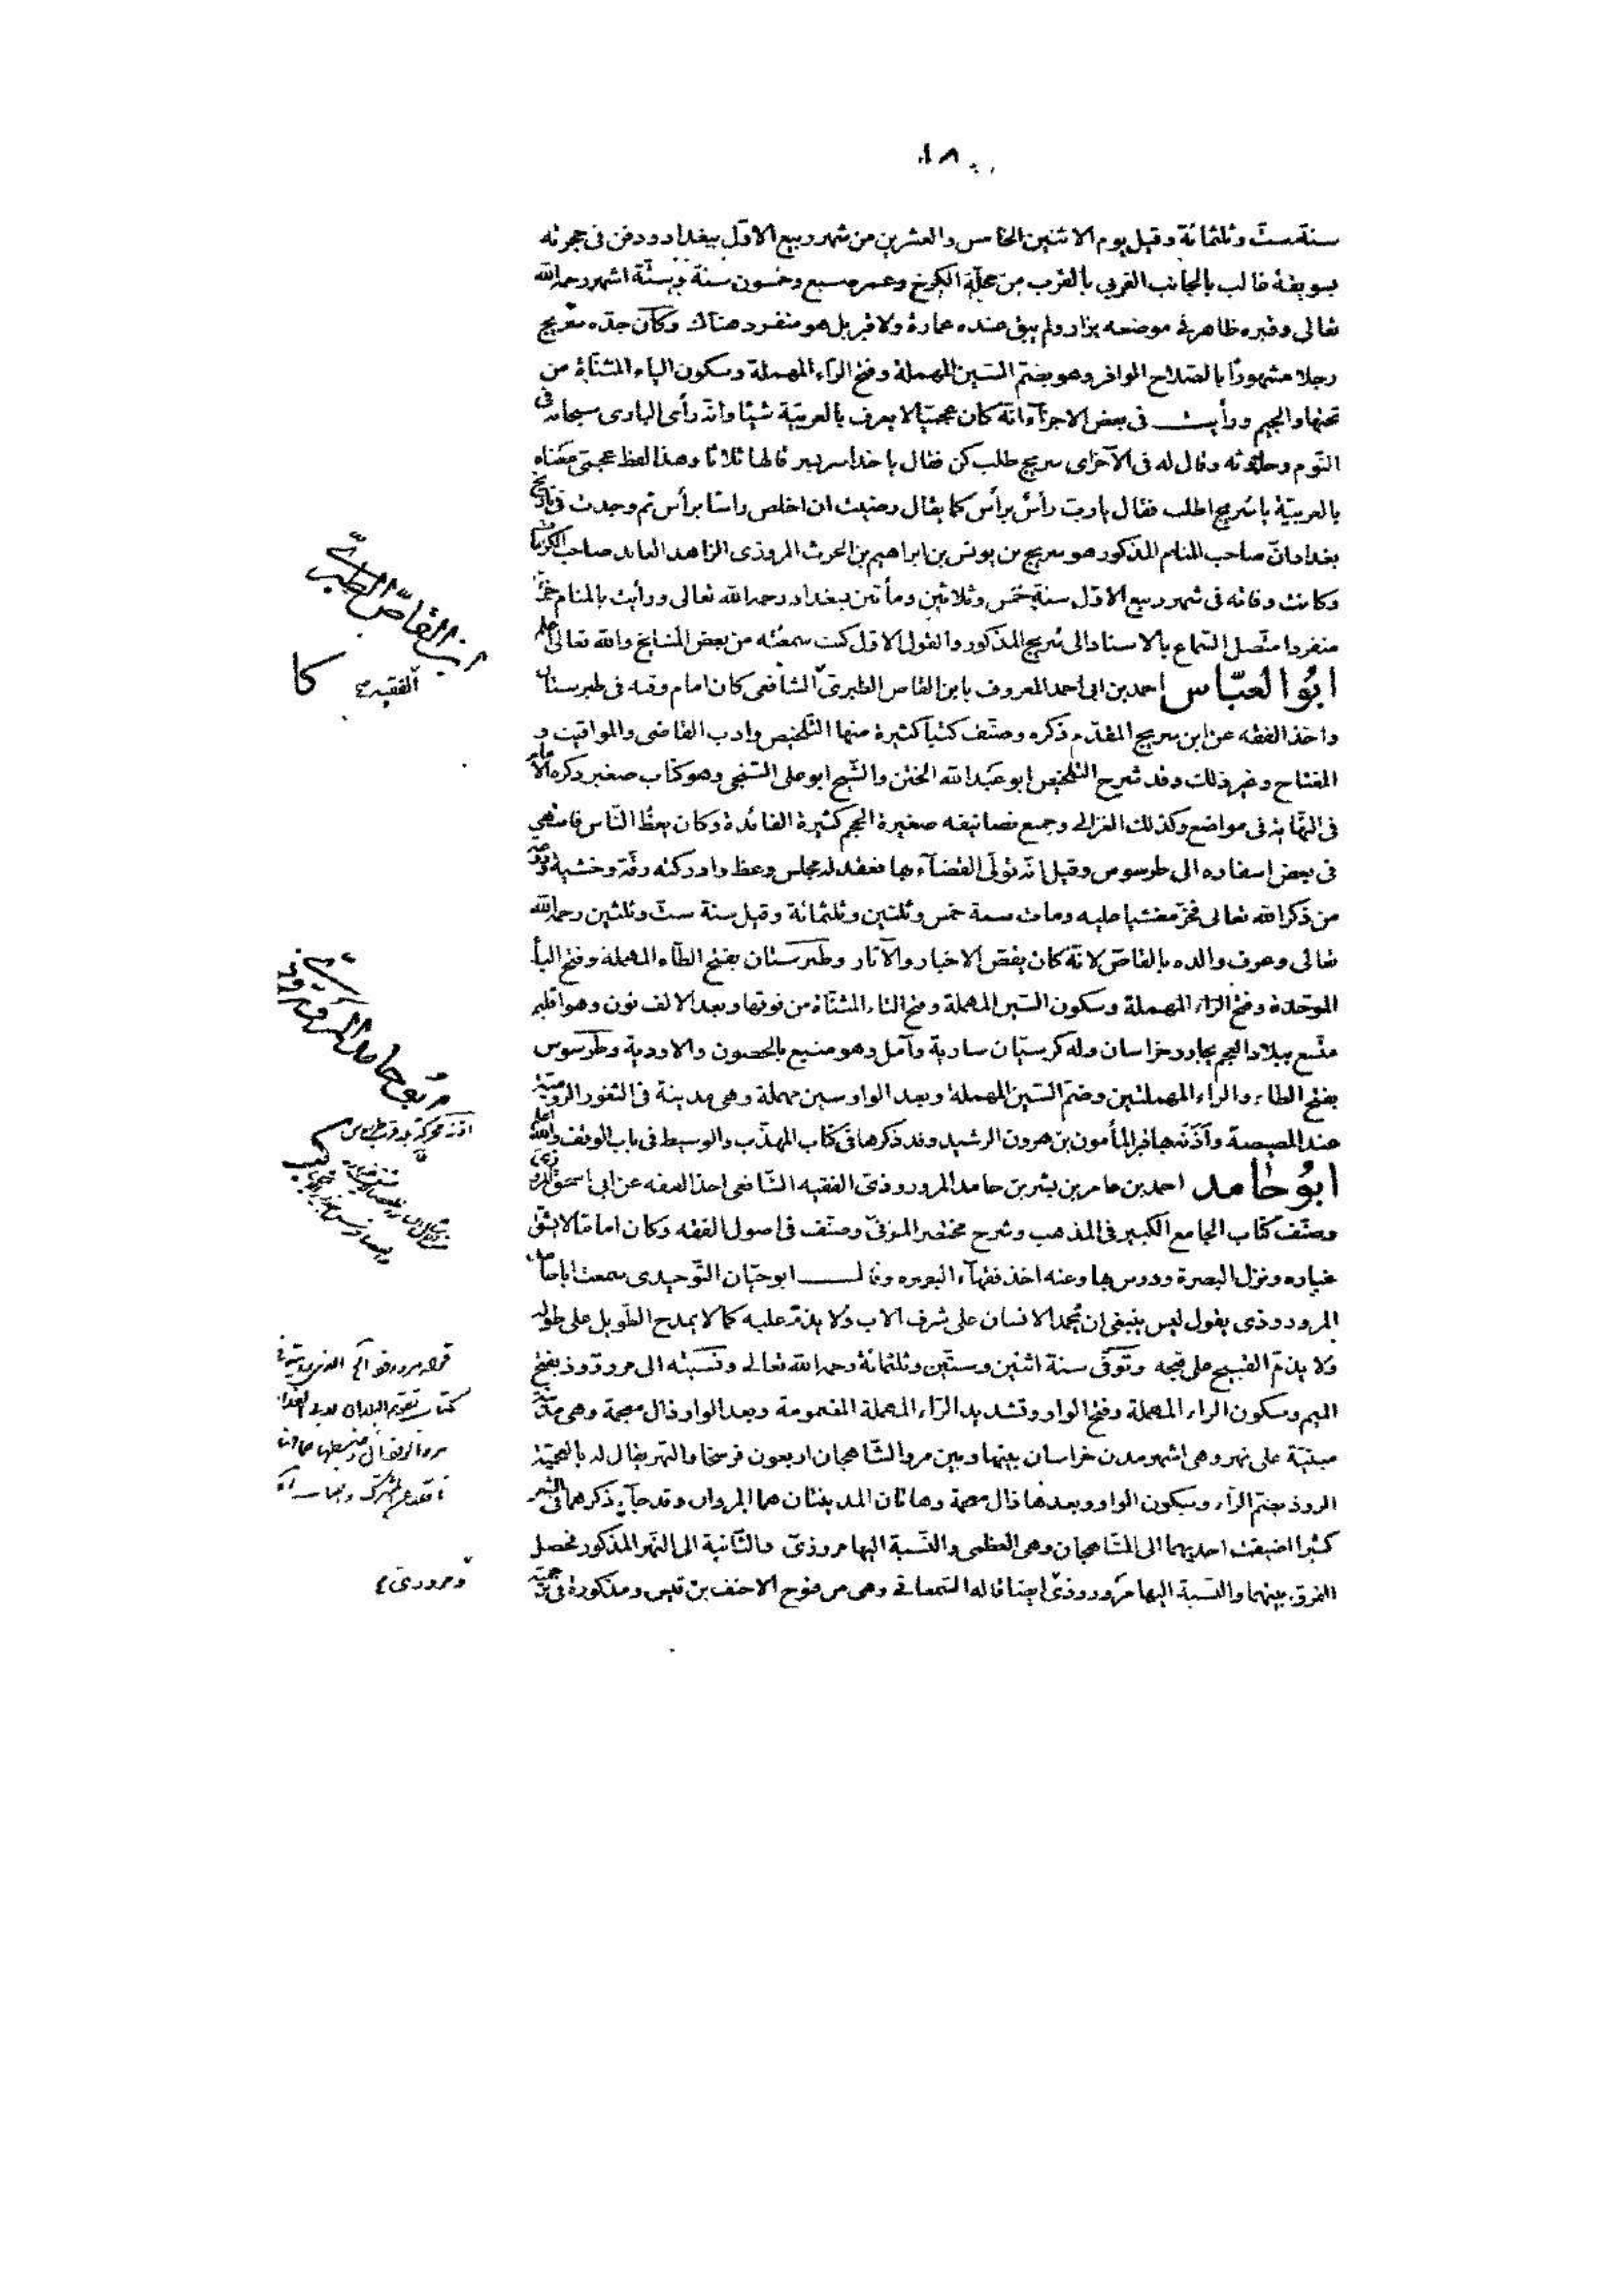 ١٨
سنة ست وثلثمائة وقيل يوم الاثنين الخامس والعشرين من شهر ربيع الاول ببغداد ودفن فى حجرته
بسويقة غالب بالجانب الغربي بالقرب من محلّة الكرخ وعمره سبع وخمسون سنة وستّة اشهر رحمه الله
تعالى وقبره ظاهر فى موضعه يزار ولم يبق عنده عمارة ولا قبر بل هو منفرد هناك وكان جدّه سريج
رجلا مشهورًا بالصلاح الوافر وهو بضمّ السّين المهملة وفتح الراء المهملة وسكون الياء المثنّاة من
تحتها والجيم ورأيت فى بعض الاجزآء انّه كان عجميّا لا يعرف بالعربيّة شيئا وانّه رأى البارى سبحانه فى
النّوم وحادثه وقال له فى الآخر اى سريج طلب كن فقال يا خدا سر بسر قالها ثلاثا وهذا لفظ عجمّى معناه
بالعربيّة يا سُريج اطلب فقال يا ربّ رأس برأس كما يقال رضيت ان اخلص راسًا برأس ثم وجدت فى تاريخ
بغداد انّ صاحب المنام المذكور هو سريج بن يونس بن ابراهيم بن الحرث المروزى الزاهد العابد صاحب الكرامات
وكانت وفاته فى شهر ربيع الاوّل سنة خمس وثلاثين ومأتين ببغداد رحمه الله تعالى ورأيت بالمنام جزءًا
منفردا متّصل السّماع بالاسناد الى سُريج المذكور والقول الاوّل كنت سمعته من بعض المشايخ والله تعالى اعلم
ابُو العبّاس احمد بن ابى احمد المعروف بابن القاص الطبرىّ الشافعى كان امام وقته فى طبرستان
واخذ الفقه عن ابن سريج المقدّم ذكره وصنّف كتبًا كثيرة منها التّلخيص وادب القاضى والمواقيت و
المفتاح وغير ذلك وقد شرح التّلخيص ابو عبد الله الختن والشّيخ ابو على السّنجى وهو كتاب صغير ذكره الامام
فى النّهاية فى مواضع وكذلك الغزالى وجميع تصانيفه صغيرة الحجم كثيرة الفائدة وكان يعظ النّاس فانتهى
فى بعض اسفاره الى طرسوس وقيل انّه تولّى القضآء بها فعقد له مجلس وعظ وادركته رقّة وخشية وروعة
من ذكر الله تعالى فخرّ مغشيا عليه ومات سنة خمس وثلثين وثلثمائة وقيل سنة ستّ وثلثين رحمه الله
تعالى وعرف والده بالقاصّ لانّه كان يقصّ الاخبار والآثار وطبرستان بفتح الطّاء المهملة وفتح البأ
الموحّدة وفتح الرّاء المهملة وسكون السّين المهملة وفتح التاء المثنّاة من فوقها وبعد الالف نون وهو اقليم
متّسع ببلاد العجم يجاور خراسان وله كرسيّان سارية وآمل وهو منيع بالحصون والاودية وطرسوس
بفتح الطاء والراء المهملتين وضمّ السّين المهملة وبعد الواو سين مهملة وهى مدينة فى الثغور الروميّة
عند المصيصة وأذنة بها قبر المأمون بن هرون الرشيد وقد ذكرها فى كتاب المهذّب والوسيط فى باب الوقف والله اعلم
ابُو حَامد احمد بن عامر بن بشر بن حامد المروروذى الفقيه الشافعى اخذ الفقه عن ابى اسحق المروزى
وصنّف كتاب الجامع الكبير فى المذهب وشرح مختصر المزنىّ وصنّف فى اصول الفقه وكان اماما لا يشقّ
غباره ونزل البصرة ودرس بها وعنه اخذ فقهآء البصرة وقال ابو حيّان التّوحيدى سمعت ابا حامد
المروروذى يقول ليس ينبغى ان يُحمد الانسان على شرف الاب ولا يذمّ عليه كما لا يمدح الطّويل على طوله
ولا يذمّ القبيح على قبحه وتوفّى سنة اثنين وستّين وثلثمائة رحمه الله تعالى ونسبته الى مروروذ بفتح
الميم وسكون الراء المهملة وفتح الواو وتشديد الرّاء المهملة المضمومة وبعد الواو ذال معجمة وهى مدينة
مبنيّة على نهر وهى اشهر مدن خراسان بينها وبين مرو الشّاهجان اربعون فرسخا والنهر يقال له بالعجميّة
الروذ بضمّ الرّآء وسكون الواو وبعدها ذال معجمة وهاتان المدينتان هما المروان وقد جآء ذكرهما فى الشعر
كثيرا اضيفت احديهما الى الشّاهجان وهى العظمى والنّسبة اليها مروزىّ والثّانية الى النّهر المذكور ليحصل
الفرق بينهما والنّسبة اليها مروروذىّ ايضا قاله السّمعانى وهى من فتوح الاحنف بن قيس ومذكورة فى ترجمته
ابن القاصّ الطبرى
الفقيه
كا
ابو حامد المروروذى
كب